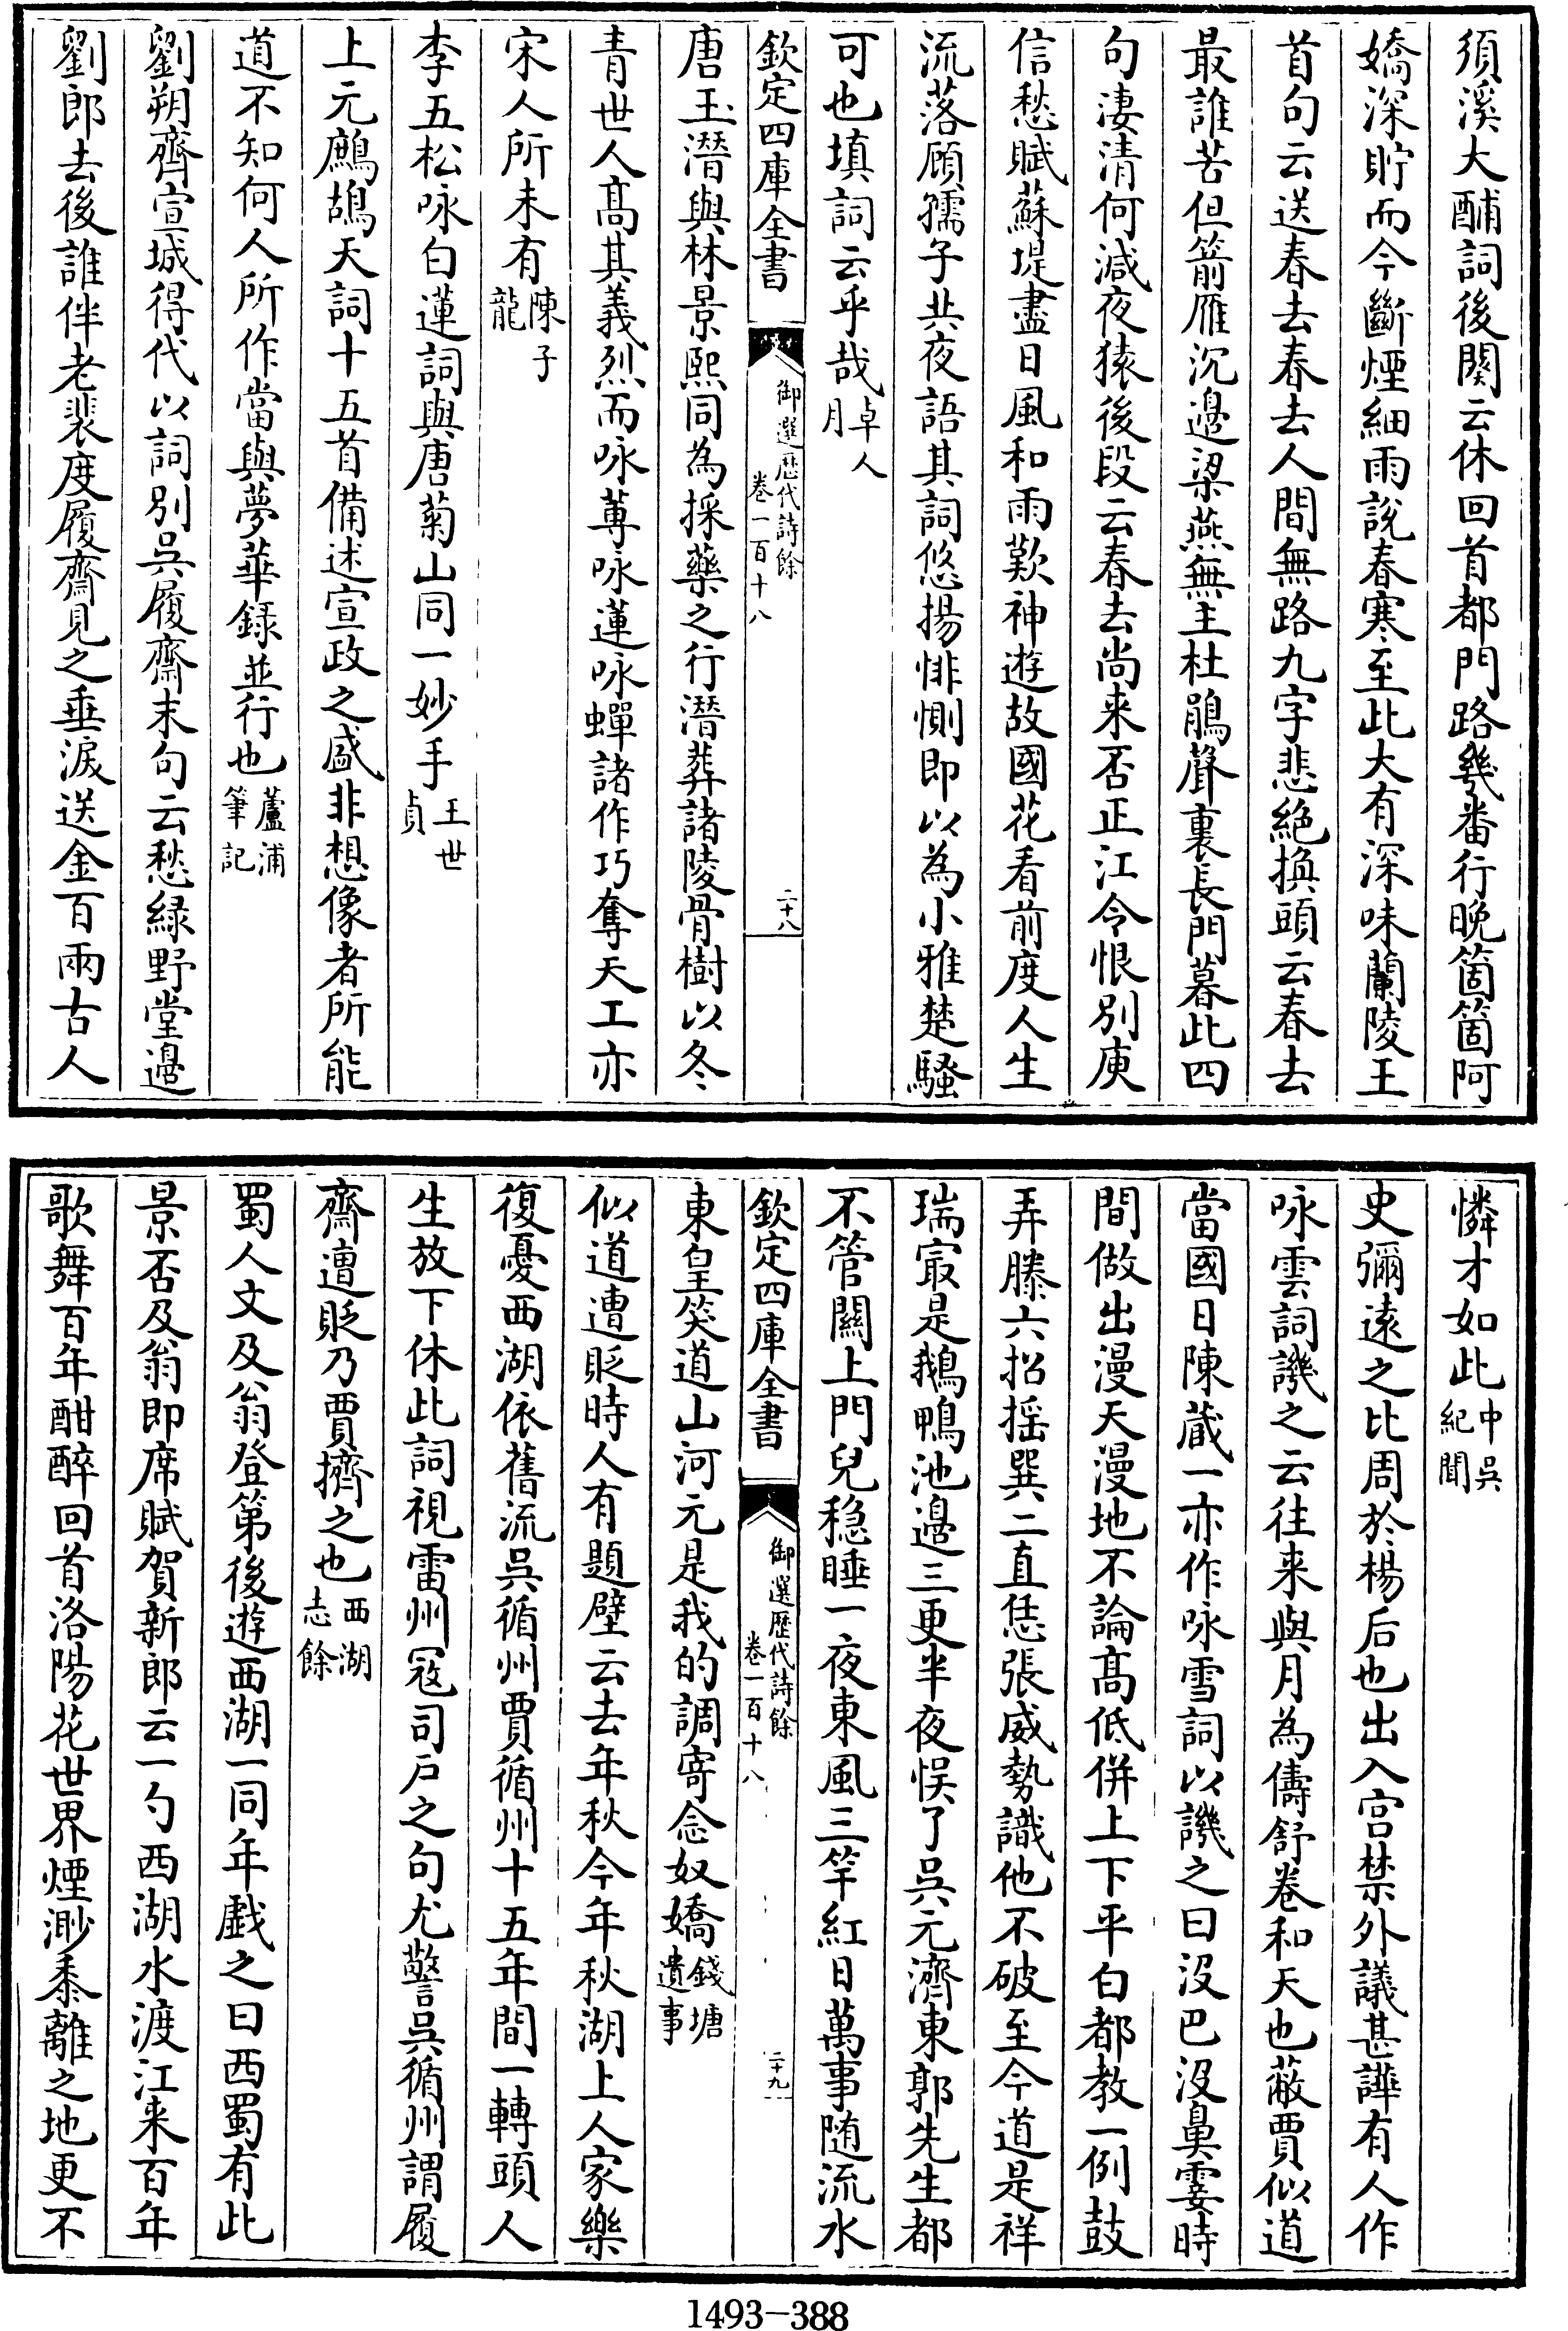 須溪大酺詞後闋云休回首都門路幾番行晚箇箇阿
嬌深貯而今斷煙細雨說春寒至此大有深味蘭陵王
首句云送春去春去人間無路九字悲絶換頭云春去
最誰苦但箭雁沉邊梁燕無主杜鵑聲裏長門暮此四
句凄清何減夜猿後段云春去尚来否正江令恨別庾
信愁賦蘇堤盡日風和雨歎神遊故國花看前度人生
流落顧孺子共夜語其詞悠揚悱惻即以為小雅楚騷
可也填詞云乎哉卓人月
欽定四庫全書
御選歷代詩餘
卷一百十八
二十八
唐玉潛與林景熙同為採藥之行潛葬諸陵骨樹以冬
青世人髙其義烈而咏蓴咏蓮咏蟬諸作巧奪天工亦
宋人所未有陳子龍
李五松咏白蓮詞與唐菊山同一妙手王世貞
上元鷓鴣天詞十五首備述宣政之盛非想像者所能
道不知何人所作當與夢華録並行也蘆浦筆記
劉朔齊宣城得代以詞別吳履齋末句云愁緑野堂邊
劉郎去後誰伴老裴度履齋見之垂淚送金百兩古人
憐才如此中吳紀聞
史彌遠之比周於楊后也出入宫禁外議甚譁有人作
咏雲詞譏之云往来與月為儔舒卷和天也蔽賈似道
當國日陳蔵一亦作咏雪詞以譏之曰沒巴沒鼻霎時
間做出漫天漫地不論髙低併上下平白都教一例鼓
弄滕六招揺巽二直恁張威勢識他不破至今道是祥
瑞㝡是鵝鴨池邊三更半夜悞了吳元濟東郭先生都
不管關上門兒穏睡一夜東風三竿紅日萬事随流水
欽定四庫全書
御選歷代詩餘
卷一百十八
二十九
東皇笑道山河元是我的調寄念奴嬌錢塘遺事
似道遭貶時人有題壁云去年秋今年秋湖上人家樂
復憂西湖依舊流吳循州賈循州十五年間一轉頭人
生放下休此詞視雷州冦司戶之句尤警吳循州謂履
齋遭貶乃賈擠之也西湖志餘
蜀人文及翁登第後遊西湖一同年戲之曰西蜀有此
景否及翁即席賦賀新郎云一勺西湖水渡江来百年
歌舞百年酣醉回首洛陽花世界煙渺黍離之地更不
1493-388